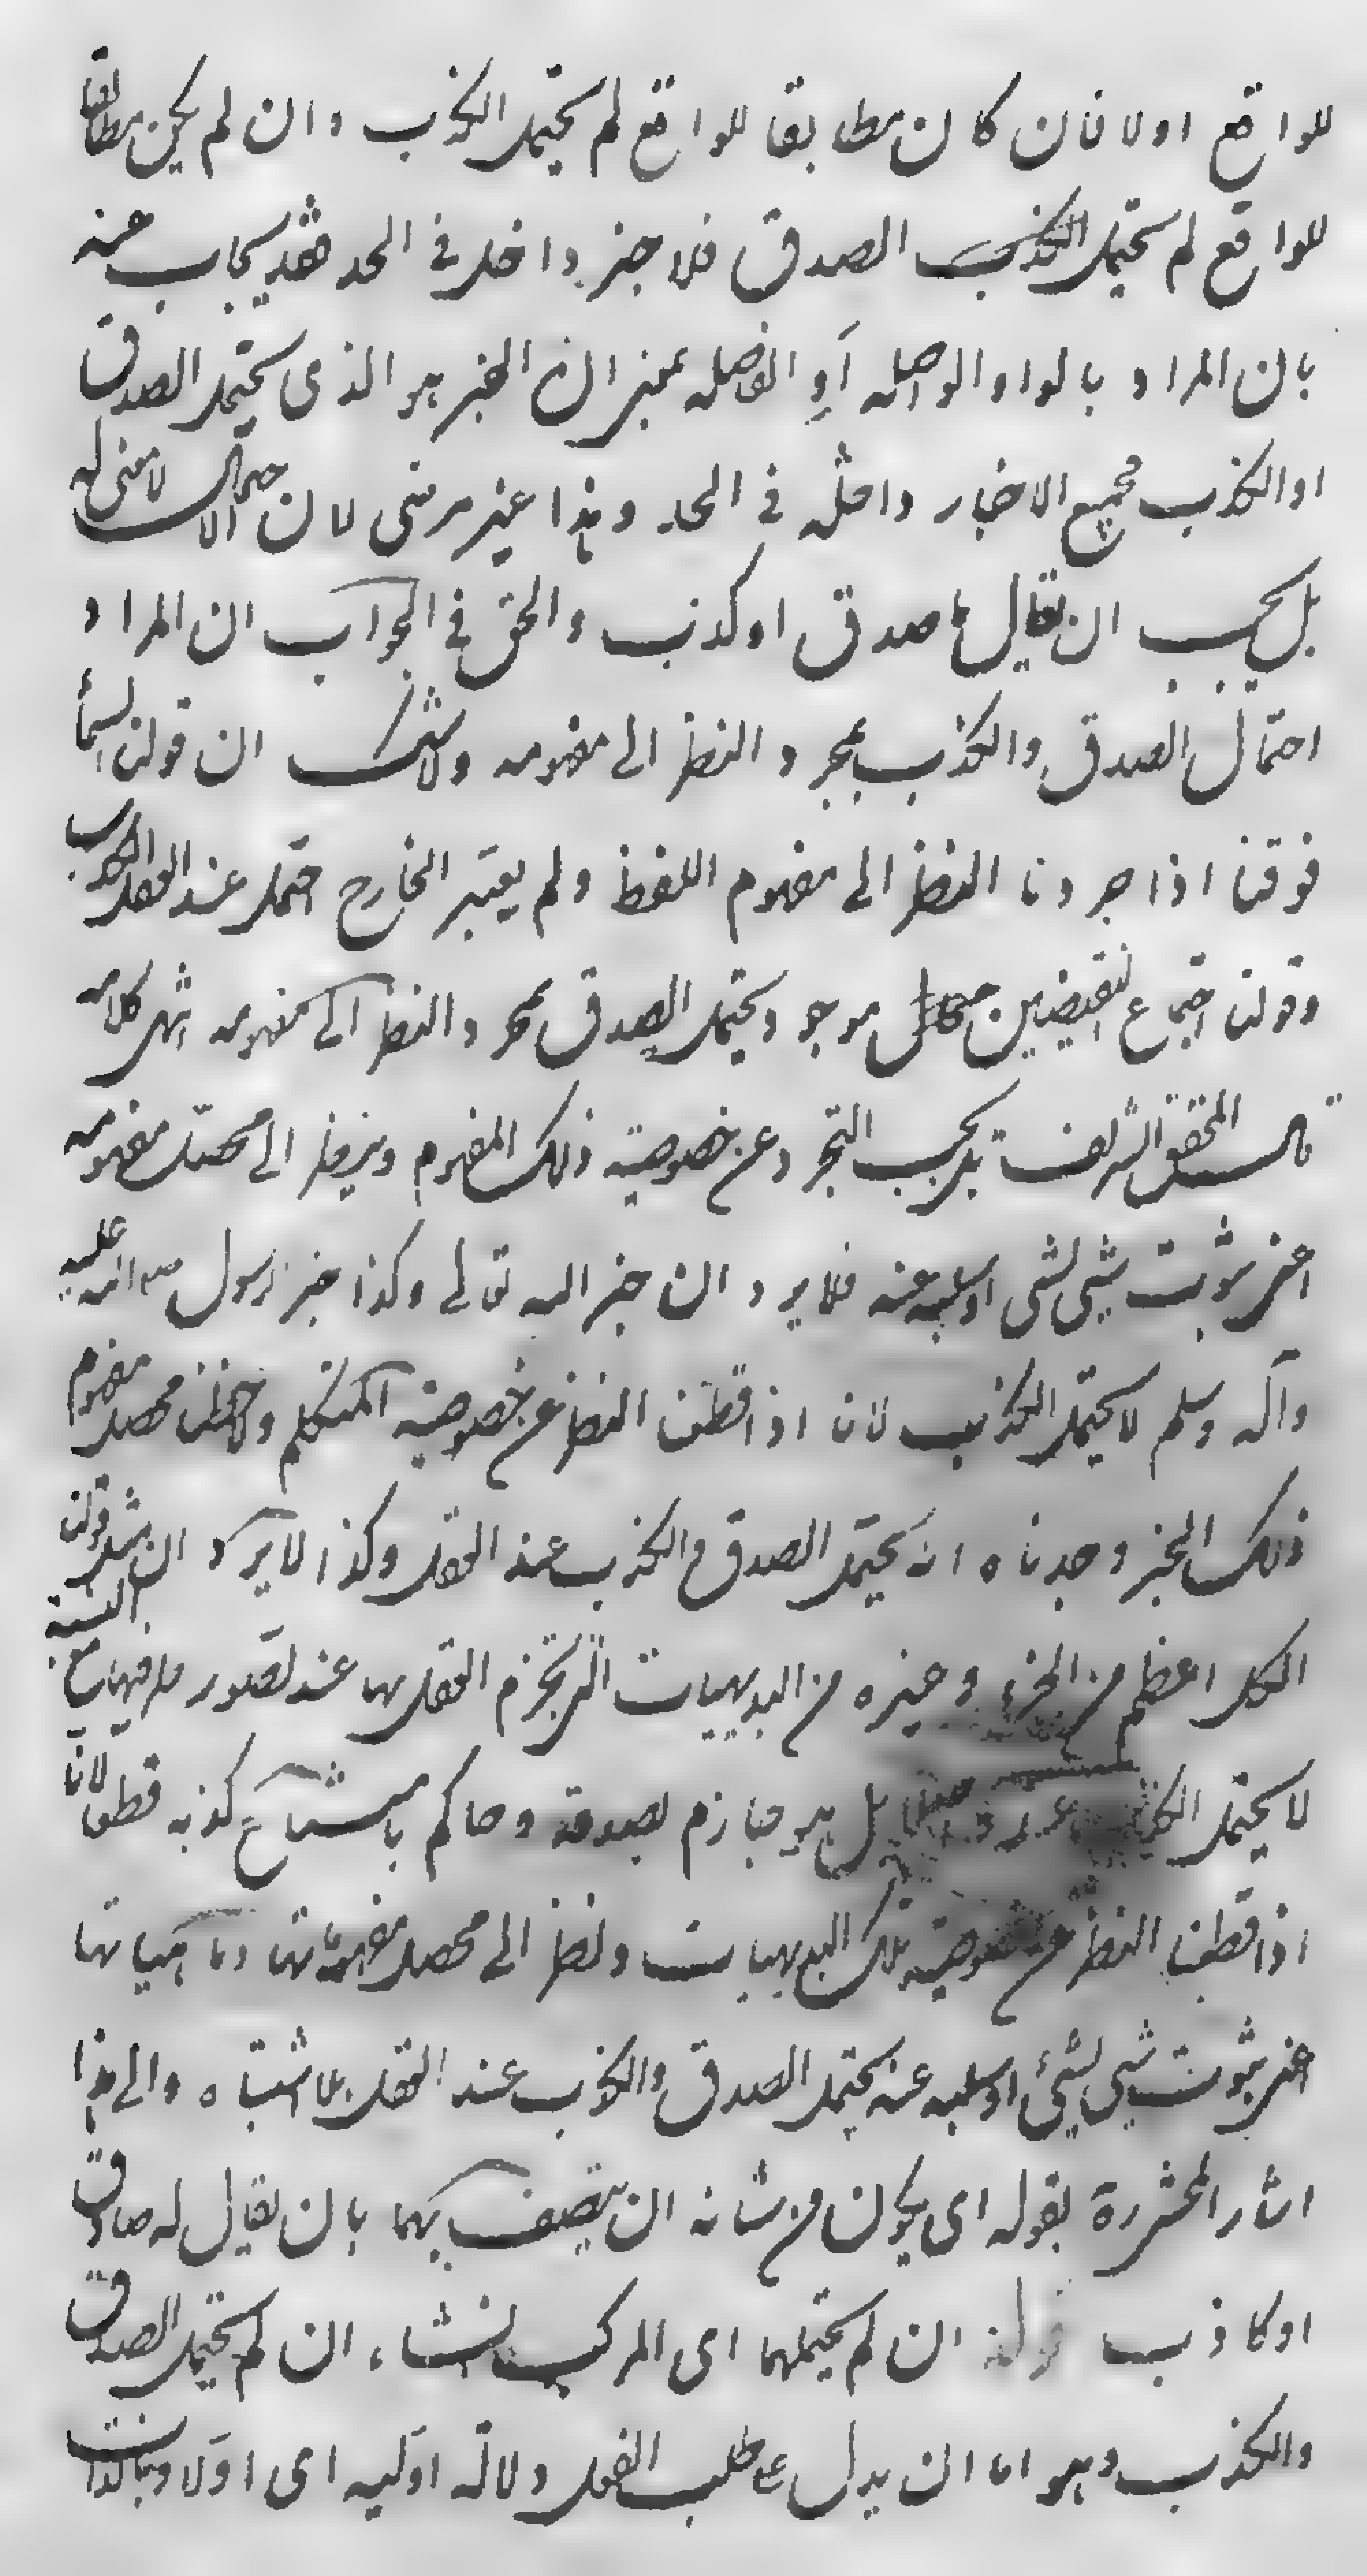 للواقع اولا فان كان مطابقا للواقع لم يحتمل الكذب وان لم يكن مطابقا
للواقع لم يحتمل الصدق فلا خبر داخل في الحد فقد يجاب عنه
بان المراد بالواو الواصله او الفاصله بمعنى ان الخبر هو الذى يحتمل الصدق
او الكذب فجميع الاخبار داخله في الحد وهذا غير مرضى لان الاحتمال لا معنى له
بل يجب ان يقال ما صدق او كذب والحق في الجواب ان المراد
احتمال الصدق والكذب بمجرد النظر الى مفهومه ولا شك ان قولنا السماء
فوقنا اذا جردنا النظر الى مفهوم اللفظ ولم يعتبر الخارج احتمل عند العقل الكذب
وقولنا اجتماع النقيضين موجود يحتمل الصدق بمجرد النظر الى مفهومه انتهى كلامه
قال المحقق الشريف بل يجب التجرد عن خصوصية ذلك المفهوم وينظر الى محصل مفهومه
اعنى ثبوت شيئ لشئ او سلبه عنه فلا يرد ان خبر الله تعالى وكذا خبر رسول صلى الله عليه
وآله وسلم لا يحتمل الكذب لانا اذا قطعنا النظر عن خصوصية المتكلم ولاحظنا محصل مفهوم
ذلك الخبر وجدناه انه يحتمل الصدق والكذب عند العقل وكذا لا يرد ان مثل قولنا
الكل اعظم من الجزء وغيره من البديهيات التى يجزم العقل بها عند تصور طرفيها مع النسبة
لا يحتمل الكذب بل هو جازم بصدقه وحاكم بامتناع كذبه قطعا لانا
اذا قطعنا النظر عن خصوصية تلك البديهيات ونظر الى محصل مفهوماتها وماهياتها
اعنى ثبوت شيئ لشيئ او سلبه عنه يحتمل الصدق والكذب عند العقل بلا اشتباه والى هذا
اشار المحشى رة بقوله اى يكون من شانه ان يتصف بهما بان يقال له صادق
او كاذب قوله ان لم يحتملهما اى المركب انشاء ان لم يحتمل الصدق
والكذب وهو اما ان يدل على طلب الفعل دلالة اوليه اى اولا وبالذات